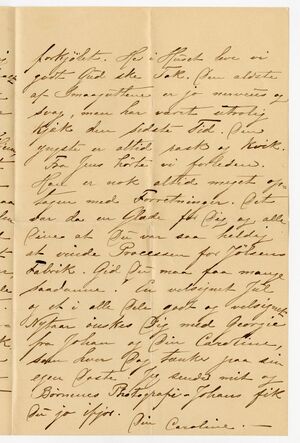 forkjølet. Her i Huset leve vi
godt Gud ske Tak. Den ældste
af Smaaguttene er jo nervøs og
svag, men har været utrolig
kjæk den sidste Tid. Den
yngste er altid rask og kvik.
Fra Jens hørte vi forleden.
Han er nok altid meget op-
tagen med Forretninger. Det
var da en Glæde for Dig og alle
Dine at Du var saa heldig
at vinde Processen for Jölsens
Fabrik. Gid Du maa faa mange
saadanne! En velsignet Jul
og et i alle Dele godt og velsignet
Nytaar ønskes Dig med Georgie
fra Johan og Din Caroline,
som hver Dag tænker paa sin
egen Jeg sender mit og
Børnenes Photografi. Johans fik
Du jo ifjor.
Din Caroline. —